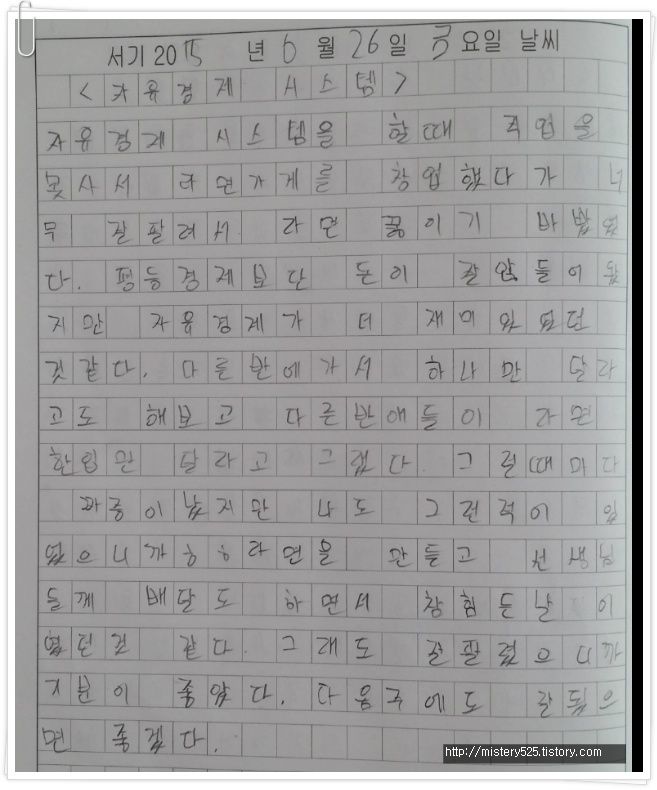 서기 2015 년 6 월 26 일 금요일 날씨
< 자유경제 시스템 >
자유경제 시스템을 할때 직업을
못사서 라면가게를 창업했다가 너
무 잘팔려서 라면 끓이기 바빴었
다. 평등경제보단 돈이 잘않들어왔
지만 자유경제가 더 재미있었던
것같다. 다른반에가서 하나만 달라
고도 해보고 다른반애들이 라면
한입만 달라고 그랬다. 그럴때마다
짜증이났지만 나도 그런적이 있
었으니까ㅎㅎ라면을 만들고 선생님
들께 배달도 하면서 참힘든날이
였던것 같다. 그래도 잘팔렸으니까
기분이 좋았다. 다음주에도 잘됬으
면 좋겠다.
http://mistery525.tistory.com